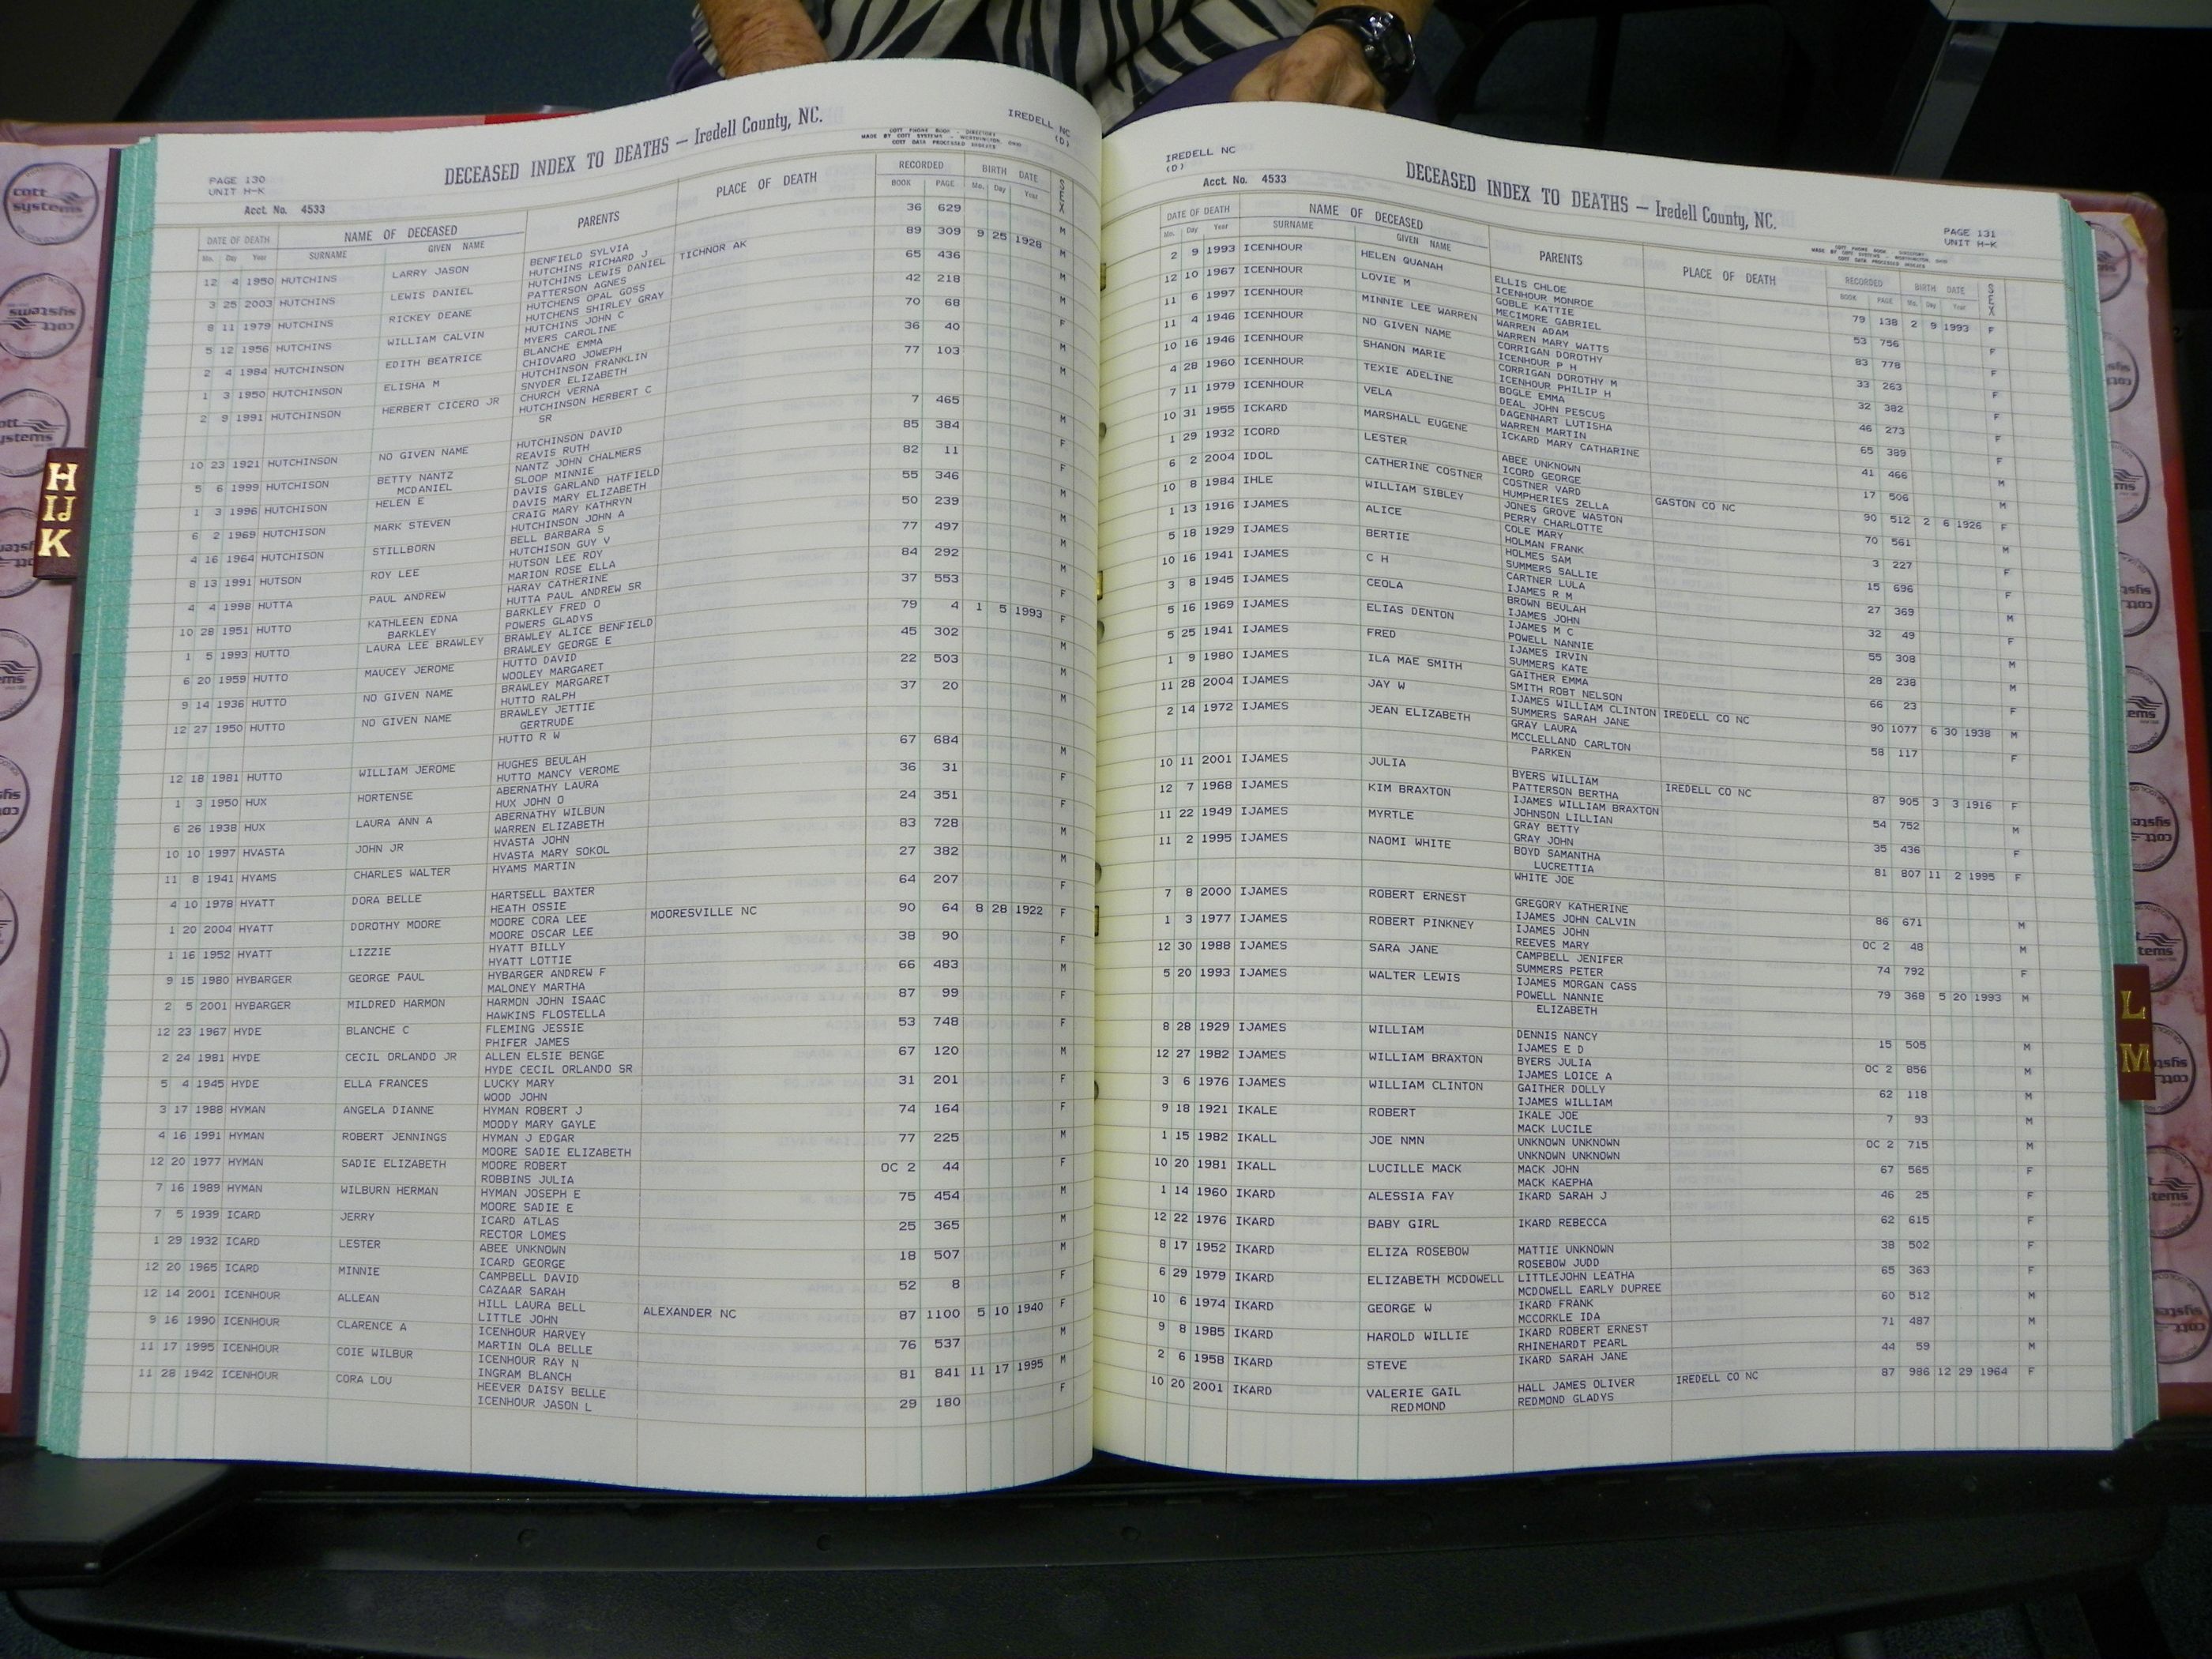 PAGE 130
UNIT H-K
DECEASED INDEX TO DEATHS — Iredell County, NC.
COTT PHONE BOOK - DIRECTORY
MADE BY COTT SYSTEMS - WORTHINGTON, OHIO
COTT DATA PROCESSED INDEXES
IREDELL NC
(D)
Acct. No. 4533
DATE OF DEATH NAME OF DECEASED PARENTS PLACE OF DEATH RECORDED BIRTH DATE SEX
Mo. Day Year SURNAME GIVEN NAME BOOK PAGE Mo. Day Year
12 4 1950 HUTCHINS LARRY JASON BENFIELD SYLVIA 36 629 M
HUTCHINS RICHARD J
3 25 2003 HUTCHINS LEWIS DANIEL HUTCHINS LEWIS DANIEL TICHNOR AK 89 309 9 25 1928 M
PATTERSON AGNES
8 11 1979 HUTCHINS RICKEY DEANE HUTCHENS OPAL GOSS 65 436 M
HUTCHENS SHIRLEY GRAY
5 12 1956 HUTCHINS WILLIAM CALVIN HUTCHINS JOHN C 42 218 M
MYERS CAROLINE
2 4 1984 HUTCHINSON EDITH BEATRICE BLANCHE EMMA 70 68 F
CHIOVARO JOWEPH
1 3 1950 HUTCHINSON ELISHA M HUTCHINSON FRANKLIN 36 40 M
SNYDER ELIZABETH
2 9 1991 HUTCHINSON HERBERT CICERO JR CHURCH VERNA 77 103 M
HUTCHINSON HERBERT C
SR
10 23 1921 HUTCHINSON NO GIVEN NAME HUTCHINSON DAVID 7 465 M
REAVIS RUTH
5 6 1999 HUTCHISON BETTY NANTZ NANTZ JOHN CHALMERS 85 384 F
MCDANIEL SLOOP MINNIE
1 3 1996 HUTCHISON HELEN E DAVIS GARLAND HATFIELD 82 11 F
DAVIS MARY ELIZABETH
6 2 1969 HUTCHISON MARK STEVEN CRAIG MARY KATHRYN 55 346 M
HUTCHINSON JOHN A
4 16 1964 HUTCHISON STILLBORN BELL BARBARA S 50 239 M
HUTCHISON GUY V
8 13 1991 HUTSON ROY LEE HUTSON LEE ROY 77 497 M
MARION ROSE ELLA
4 4 1998 HUTTA PAUL ANDREW HARAY CATHERINE 84 292 M
HUTTA PAUL ANDREW SR
10 28 1951 HUTTO KATHLEEN EDNA BARKLEY FRED O 37 553 F
BARKLEY POWERS GLADYS
1 5 1993 HUTTO LAURA LEE BRAWLEY BRAWLEY ALICE BENFIELD 79 4 1 5 1993 F
BRAWLEY GEORGE E
6 20 1959 HUTTO MAUCEY JEROME HUTTO DAVID 45 302 M
WOOLEY MARGARET
9 14 1936 HUTTO NO GIVEN NAME BRAWLEY MARGARET 22 503 M
HUTTO RALPH
12 27 1950 HUTTO NO GIVEN NAME BRAWLEY JETTIE 37 20 M
GERTRUDE
HUTTO R W
12 18 1981 HUTTO WILLIAM JEROME HUGHES BEULAH 67 684 M
HUTTO MANCY VEROME
1 3 1950 HUX HORTENSE ABERNATHY LAURA 36 31 F
HUX JOHN O
6 26 1938 HUX LAURA ANN A ABERNATHY WILBUN 24 351 F
WARREN ELIZABETH
10 10 1997 HVASTA JOHN JR HVASTA JOHN 83 728 M
HVASTA MARY SOKOL
11 8 1941 HYAMS CHARLES WALTER HYAMS MARTIN 27 382 M
4 10 1978 HYATT DORA BELLE HARTSELL BAXTER 64 207 F
HEATH OSSIE
1 20 2004 HYATT DOROTHY MOORE MOORE CORA LEE MOORESVILLE NC 90 64 8 28 1922 F
MOORE OSCAR LEE
1 16 1952 HYATT LIZZIE HYATT BILLY 38 90 F
HYATT LOTTIE
9 15 1980 HYBARGER GEORGE PAUL HYBARGER ANDREW F 66 483 M
MALONEY MARTHA
2 5 2001 HYBARGER MILDRED HARMON HARMON JOHN ISAAC 87 99 F
HAWKINS FLOSTELLA
12 23 1967 HYDE BLANCHE C FLEMING JESSIE 53 748 F
PHIFER JAMES
2 24 1981 HYDE CECIL ORLANDO JR ALLEN ELSIE BENGE 67 120 M
HYDE CECIL ORLANDO SR
5 4 1945 HYDE ELLA FRANCES LUCKY MARY 31 201 F
WOOD JOHN
3 17 1988 HYMAN ANGELA DIANNE HYMAN ROBERT J 74 164 F
MOODY MARY GAYLE
4 16 1991 HYMAN ROBERT JENNINGS HYMAN J EDGAR 77 225 M
MOORE SADIE ELIZABETH
12 20 1977 HYMAN SADIE ELIZABETH MOORE ROBERT OC 2 44 F
ROBBINS JULIA
7 16 1989 HYMAN WILBURN HERMAN HYMAN JOSEPH E 75 454 M
MOORE SADIE E
7 5 1939 ICARD JERRY ICARD ATLAS 25 365 M
RECTOR LOMES
1 29 1932 ICARD LESTER ABEE UNKNOWN 18 507 M
ICARD GEORGE
12 20 1965 ICARD MINNIE CAMPBELL DAVID 52 8 F
CAZAAR SARAH
12 14 2001 ICENHOUR ALLEAN HILL LAURA BELL ALEXANDER NC 87 1100 5 10 1940 F
LITTLE JOHN
9 16 1990 ICENHOUR CLARENCE A ICENHOUR HARVEY 76 537 M
MARTIN OLA BELLE
11 17 1995 ICENHOUR COIE WILBUR ICENHOUR RAY N 81 841 11 17 1995 M
INGRAM BLANCH
11 28 1942 ICENHOUR CORA LOU HEEVER DAISY BELLE 29 180 F
ICENHOUR JASON L
IREDELL NC
(D)
Acct. No. 4533
DECEASED INDEX TO DEATHS — Iredell County, NC.
COTT PHONE BOOK - DIRECTORY
MADE BY COTT SYSTEMS - WORTHINGTON, OHIO
COTT DATA PROCESSED INDEXES
PAGE 131
UNIT H-K
DATE OF DEATH NAME OF DECEASED PARENTS PLACE OF DEATH RECORDED BIRTH DATE SEX
Mo. Day Year SURNAME GIVEN NAME BOOK PAGE Mo. Day Year
2 9 1993 ICENHOUR HELEN QUANAH ELLIS CHLOE 79 138 2 9 1993 F
ICENHOUR MONROE
12 10 1967 ICENHOUR LOVIE M GOBLE KATTIE 53 756 F
MECIMORE GABRIEL
11 6 1997 ICENHOUR MINNIE LEE WARREN WARREN ADAM 83 778 F
WARREN MARY WATTS
11 4 1946 ICENHOUR NO GIVEN NAME CORRIGAN DOROTHY 33 263 F
ICENHOUR P H
10 16 1946 ICENHOUR SHANON MARIE CORRIGAN DOROTHY M 32 382 F
ICENHOUR PHILIP H
4 28 1960 ICENHOUR TEXIE ADELINE BOGLE EMMA 46 273 F
DEAL JOHN PESCUS
7 11 1979 ICENHOUR VELA DAGENHART LUTISHA 65 389
WARREN MARTIN
10 31 1955 ICKARD MARSHALL EUGENE ICKARD MARY CATHARINE 41 466 M
1 29 1932 ICORD LESTER ABEE UNKNOWN 17 506 M
ICORD GEORGE
6 2 2004 IDOL CATHERINE COSTNER COSTNER VARD GASTON CO NC 90 512 2 6 1926 F
HUMPHERIES ZELLA
10 8 1984 IHLE WILLIAM SIBLEY JONES GROVE WASTON 70 561 M
PERRY CHARLOTTE
1 13 1916 IJAMES ALICE COLE MARY 3 227 F
HOLMAN FRANK
5 18 1929 IJAMES BERTIE HOLMES SAM 15 696 F
SUMMERS SALLIE
10 16 1941 IJAMES C H CARTNER LULA 27 369 M
IJAMES R M
3 8 1945 IJAMES CEOLA BROWN BEULAH 32 49 F
IJAMES JOHN
5 16 1969 IJAMES ELIAS DENTON IJAMES M C 55 308 M
POWELL NANNIE
5 25 1941 IJAMES FRED IJAMES IRVIN 28 238 M
SUMMERS KATE
1 9 1980 IJAMES ILA MAE SMITH GAITHER EMMA 66 23 F
SMITH ROBT NELSON
11 28 2004 IJAMES JAY W IJAMES WILLIAM CLINTON IREDELL CO NC 90 1077 6 30 1938 M
SUMMERS SARAH JANE
2 14 1972 IJAMES JEAN ELIZABETH GRAY LAURA 58 117 F
MCCLELLAND CARLTON
PARKEN
10 11 2001 IJAMES JULIA BYERS WILLIAM IREDELL CO NC 87 905 3 3 1916 F
PATTERSON BERTHA
12 7 1968 IJAMES KIM BRAXTON IJAMES WILLIAM BRAXTON 54 752 M
JOHNSON LILLIAN
11 22 1949 IJAMES MYRTLE GRAY BETTY 35 436 F
GRAY JOHN
11 2 1995 IJAMES NAOMI WHITE BOYD SAMANTHA 81 807 11 2 1995 F
LUCRETTIA
WHITE JOE
7 8 2000 IJAMES ROBERT ERNEST GREGORY KATHERINE 86 671 M
IJAMES JOHN CALVIN
1 3 1977 IJAMES ROBERT PINKNEY IJAMES JOHN OC 2 48 M
REEVES MARY
12 30 1988 IJAMES SARA JANE CAMPBELL JENIFER 74 792 F
SUMMERS PETER
5 20 1993 IJAMES WALTER LEWIS IJAMES MORGAN CASS 79 368 5 20 1993 M
POWELL NANNIE
ELIZABETH
8 28 1929 IJAMES WILLIAM DENNIS NANCY 15 505 M
IJAMES E D
12 27 1982 IJAMES WILLIAM BRAXTON BYERS JULIA OC 2 856 M
IJAMES LOICE A
3 6 1976 IJAMES WILLIAM CLINTON GAITHER DOLLY 62 118 M
IJAMES WILLIAM
9 18 1921 IKALE ROBERT IKALE JOE 7 93 M
MACK LUCILE
1 15 1982 IKALL JOE NMN UNKNOWN UNKNOWN OC 2 715 M
UNKNOWN UNKNOWN
10 20 1981 IKALL LUCILLE MACK MACK JOHN 67 565 F
MACK KAEPHA
1 14 1960 IKARD ALESSIA FAY IKARD SARAH J 46 25 F
12 22 1976 IKARD BABY GIRL IKARD REBECCA 62 615 F
8 17 1952 IKARD ELIZA ROSEBOW MATTIE UNKNOWN 38 502 F
ROSEBOW JUDD
6 29 1979 IKARD ELIZABETH MCDOWELL LITTLEJOHN LEATHA 65 363 F
MCDOWELL EARLY DUPREE
10 6 1974 IKARD GEORGE W IKARD FRANK 60 512 M
MCCORKLE IDA
9 8 1985 IKARD HAROLD WILLIE IKARD ROBERT ERNEST 71 487 M
RHINEHARDT PEARL
2 6 1958 IKARD STEVE IKARD SARAH JANE 44 59 M
10 20 2001 IKARD VALERIE GAIL HALL JAMES OLIVER IREDELL CO NC 87 986 12 29 1964 F
REDMOND REDMOND GLADYS
H
IJ
K
L
M
cott
systems